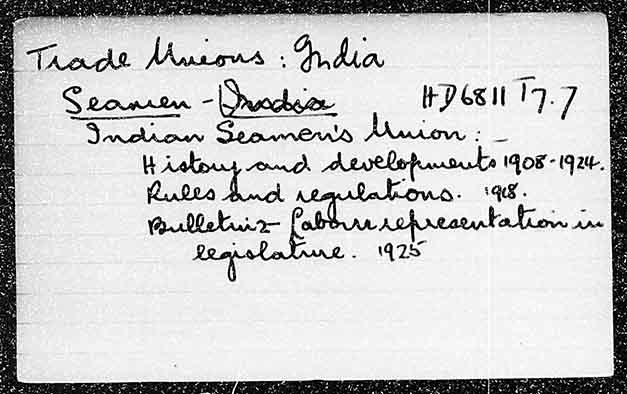 Trade Unions : India
Seamen - India HD6811 T7.7
Indian Seamen's Union : -
History and developments 1908-1924.
Rules and regulations. 1918.
Bulletin 2 - Labour representation in
legislature. 1925